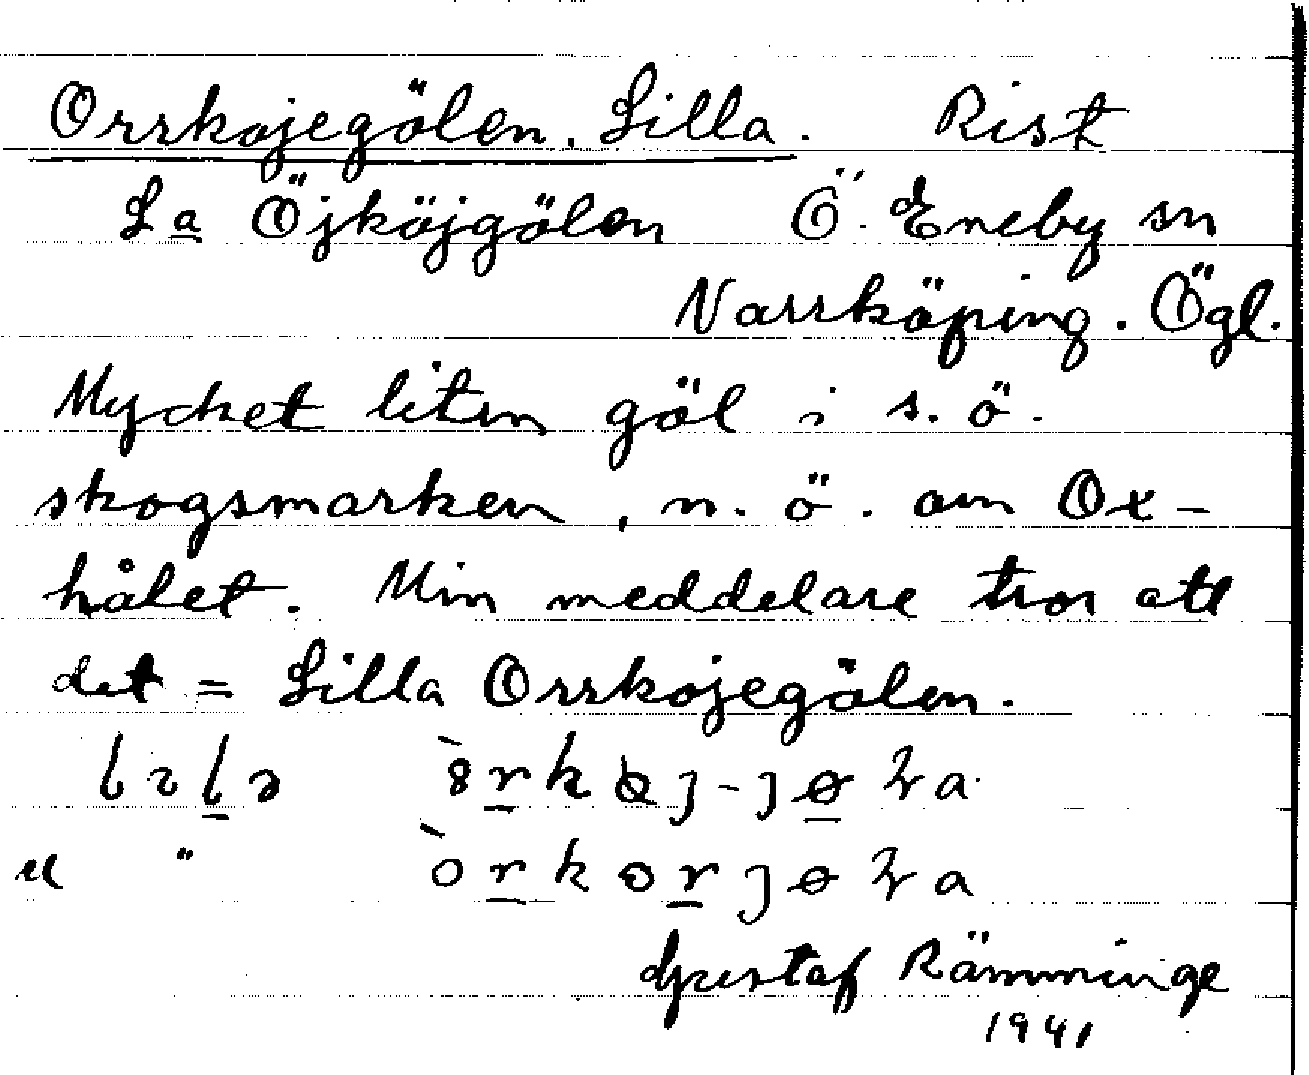 Orrkojegölen. Lilla. Rist
La Öjköjgölen Ö. Eneby sn
Norrköping. Ögl.
Mycket liten göl i s. ö.
skogsmarken, n. ö. om Ox-
hålet. Min meddelare tror att
det = Lilla Orrkojegölen.
Gustaf Rämminge
1941